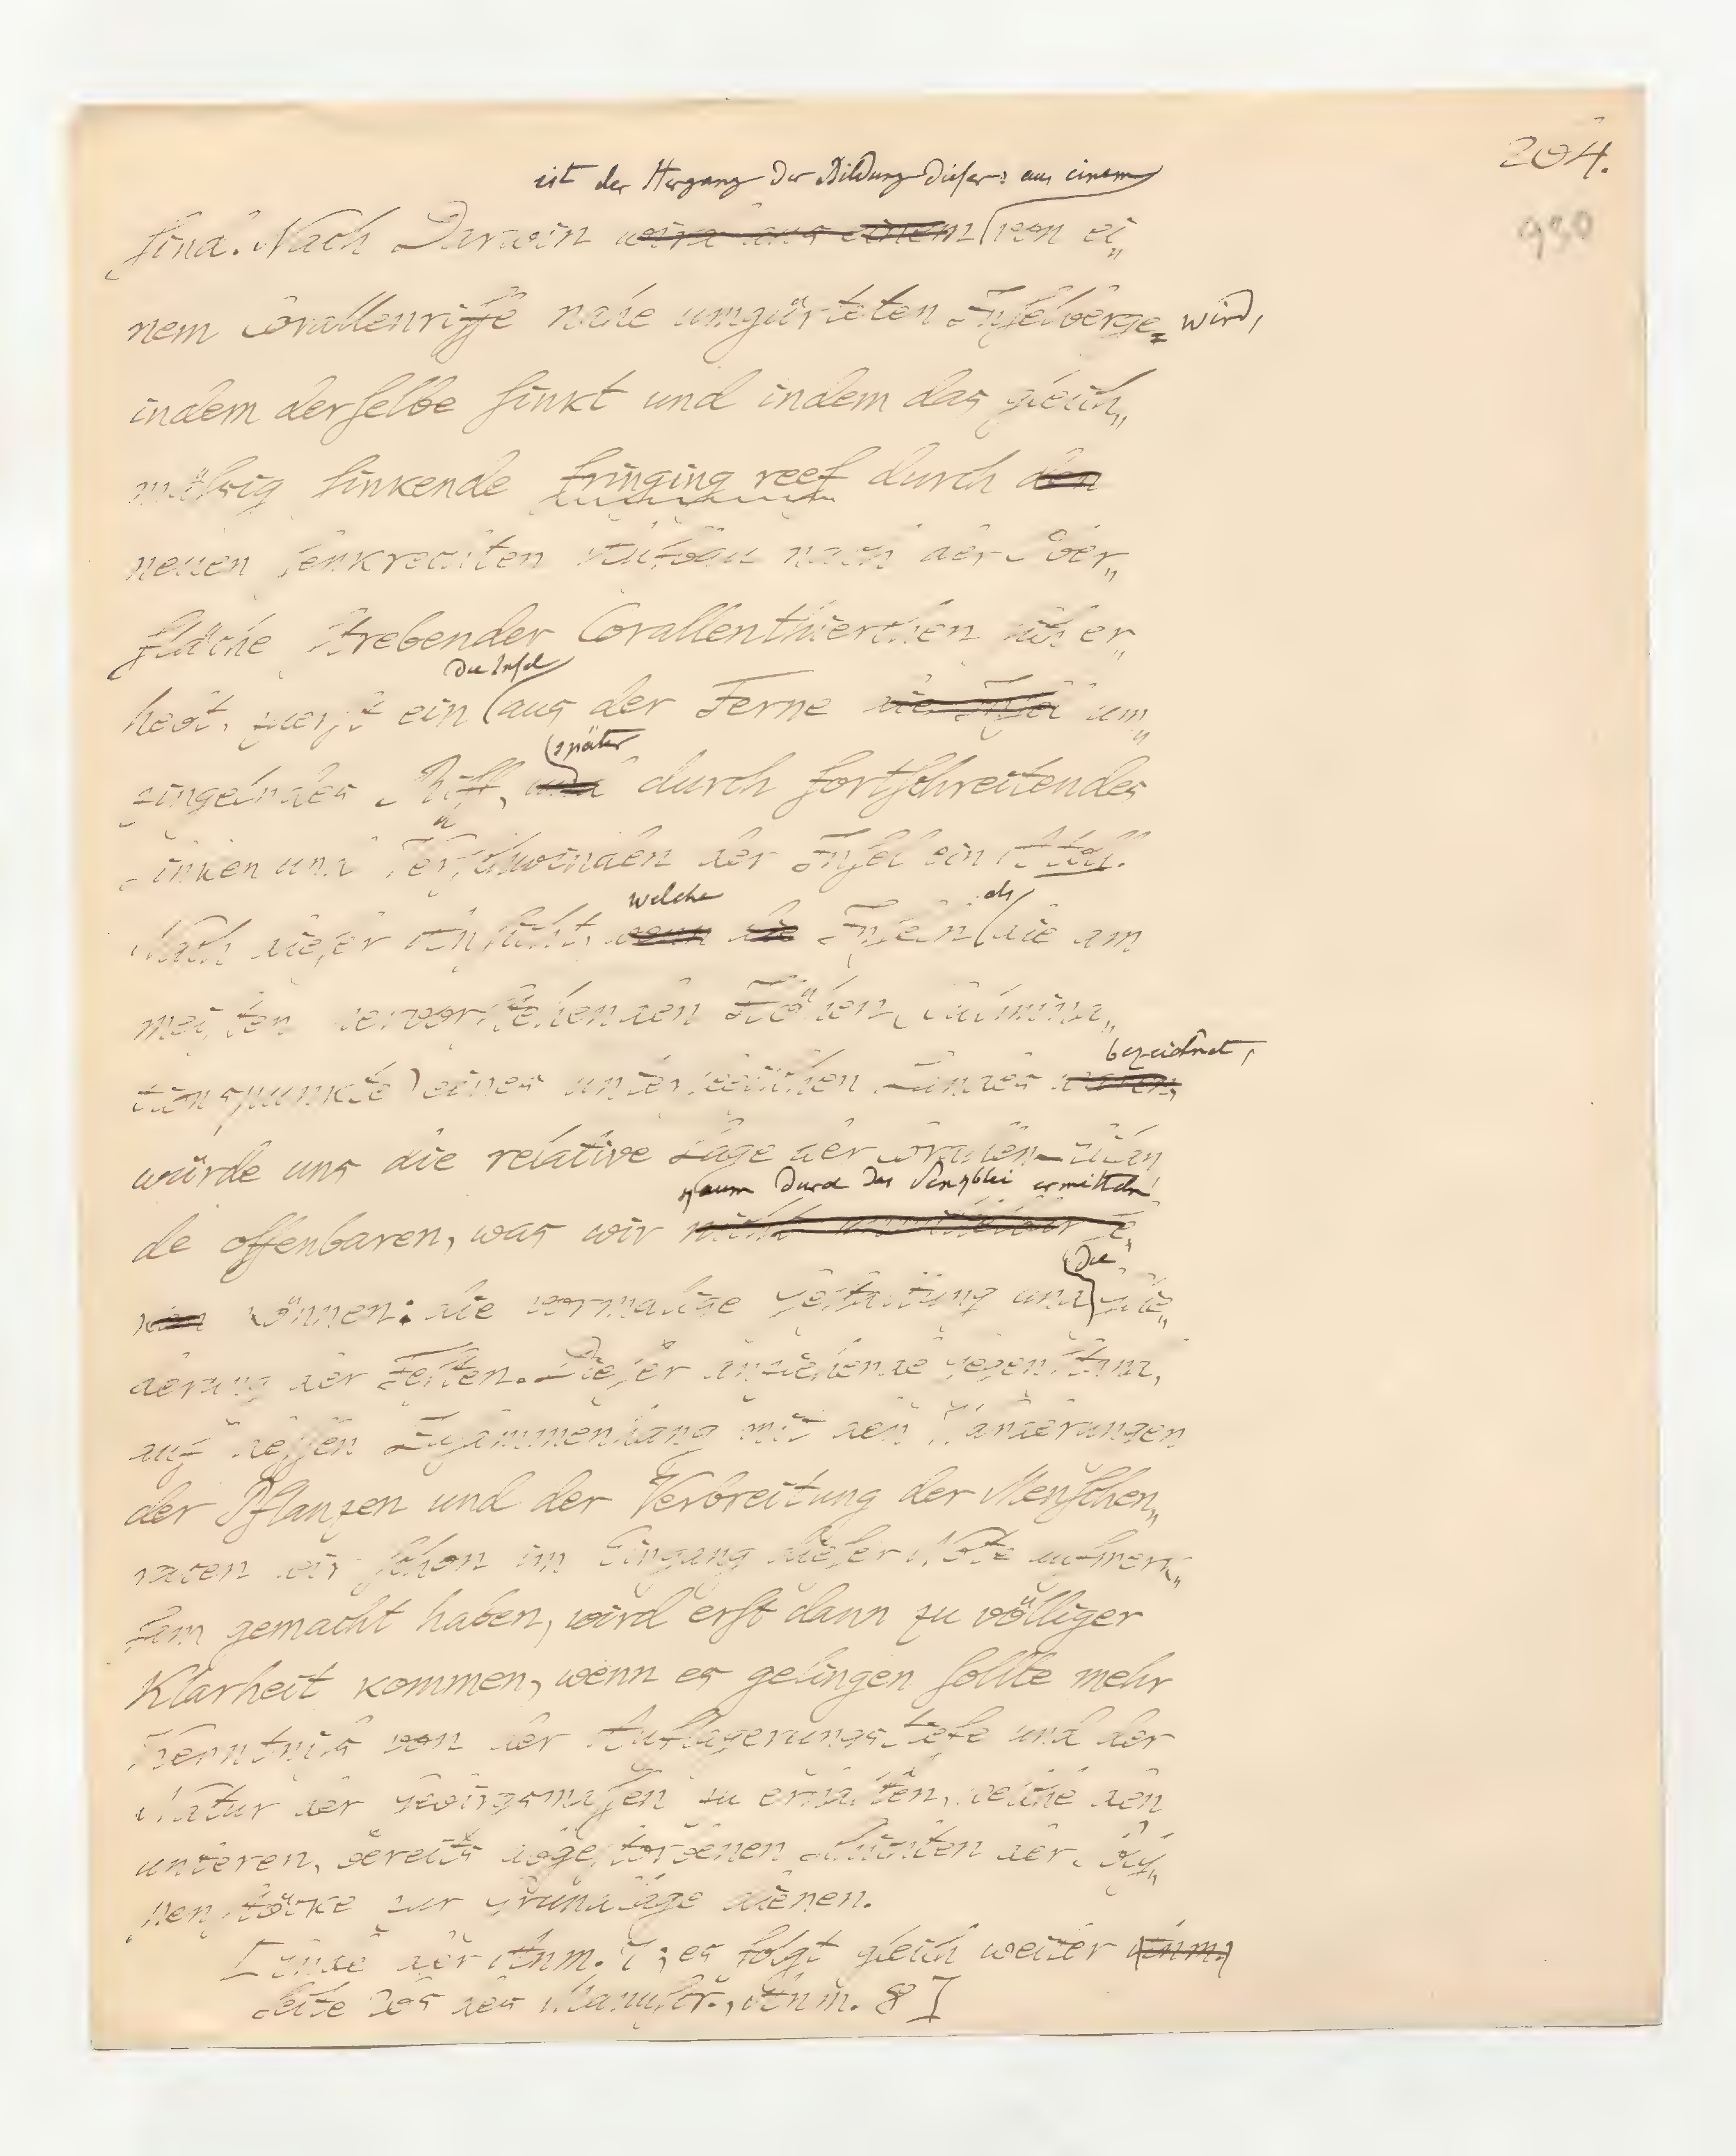 204.
930
ist der Hergang der Bildung dieser: aus einem
sind. Nach Darwin wird aus einem von ei„
nem Corallenriffe nahe umgürteten Inselberge wird,
indem derselbe sinkt und indem das gleich„
mäßig sinkende fringing reef durch den
neuen senkrechten Aufbau nach der Ober„
fläche strebender Corallenthierchen sich er„
die Insel
hebt, zuerst ein aus der Ferne die Insel um„
später
zingelndes Riff, und durch fortschreitendes
Sinken und Verschwinden der Insel ein Atoll.
welche als
Nach dieser Ansicht, wenn die Inseln die am
meisten hervorstehenden Höhen, Culmina„
bezeichnet,
tionspunkte) eines unterseeischen Landes waren,
würde uns die relative Lage der Corallen-Eilan
kaum durch das Senkblei ermitteln
de offenbaren, was wir nicht unmittelbar
die
können: die vormalige Gestaltung und Glie„
derung der Festen. Dieser anziehende Gegenstand,
auf dessen Zusammenhang mit den Wanderungen
der Pflanzen und der Verbreitung der Menschen„
racen wir schon im Eingang dieser Note aufmerk„
sam gemacht haben, wird erst dann zu völliger
Klarheit kommen, wenn es gelingen sollte mehr
Kenntniß von der Auflagerungs-tiefe und der
Natur der Gebirgsmassen zu erhalten, welche den
unteren, bereits abgestorbenen Schichten der Poly„
penstöcke zur Grundlage dienen.
[Ende der Anm. 7; es folgt gleich weiter (Anm.)
Seite 205 des Manuscr., Anm. 8]